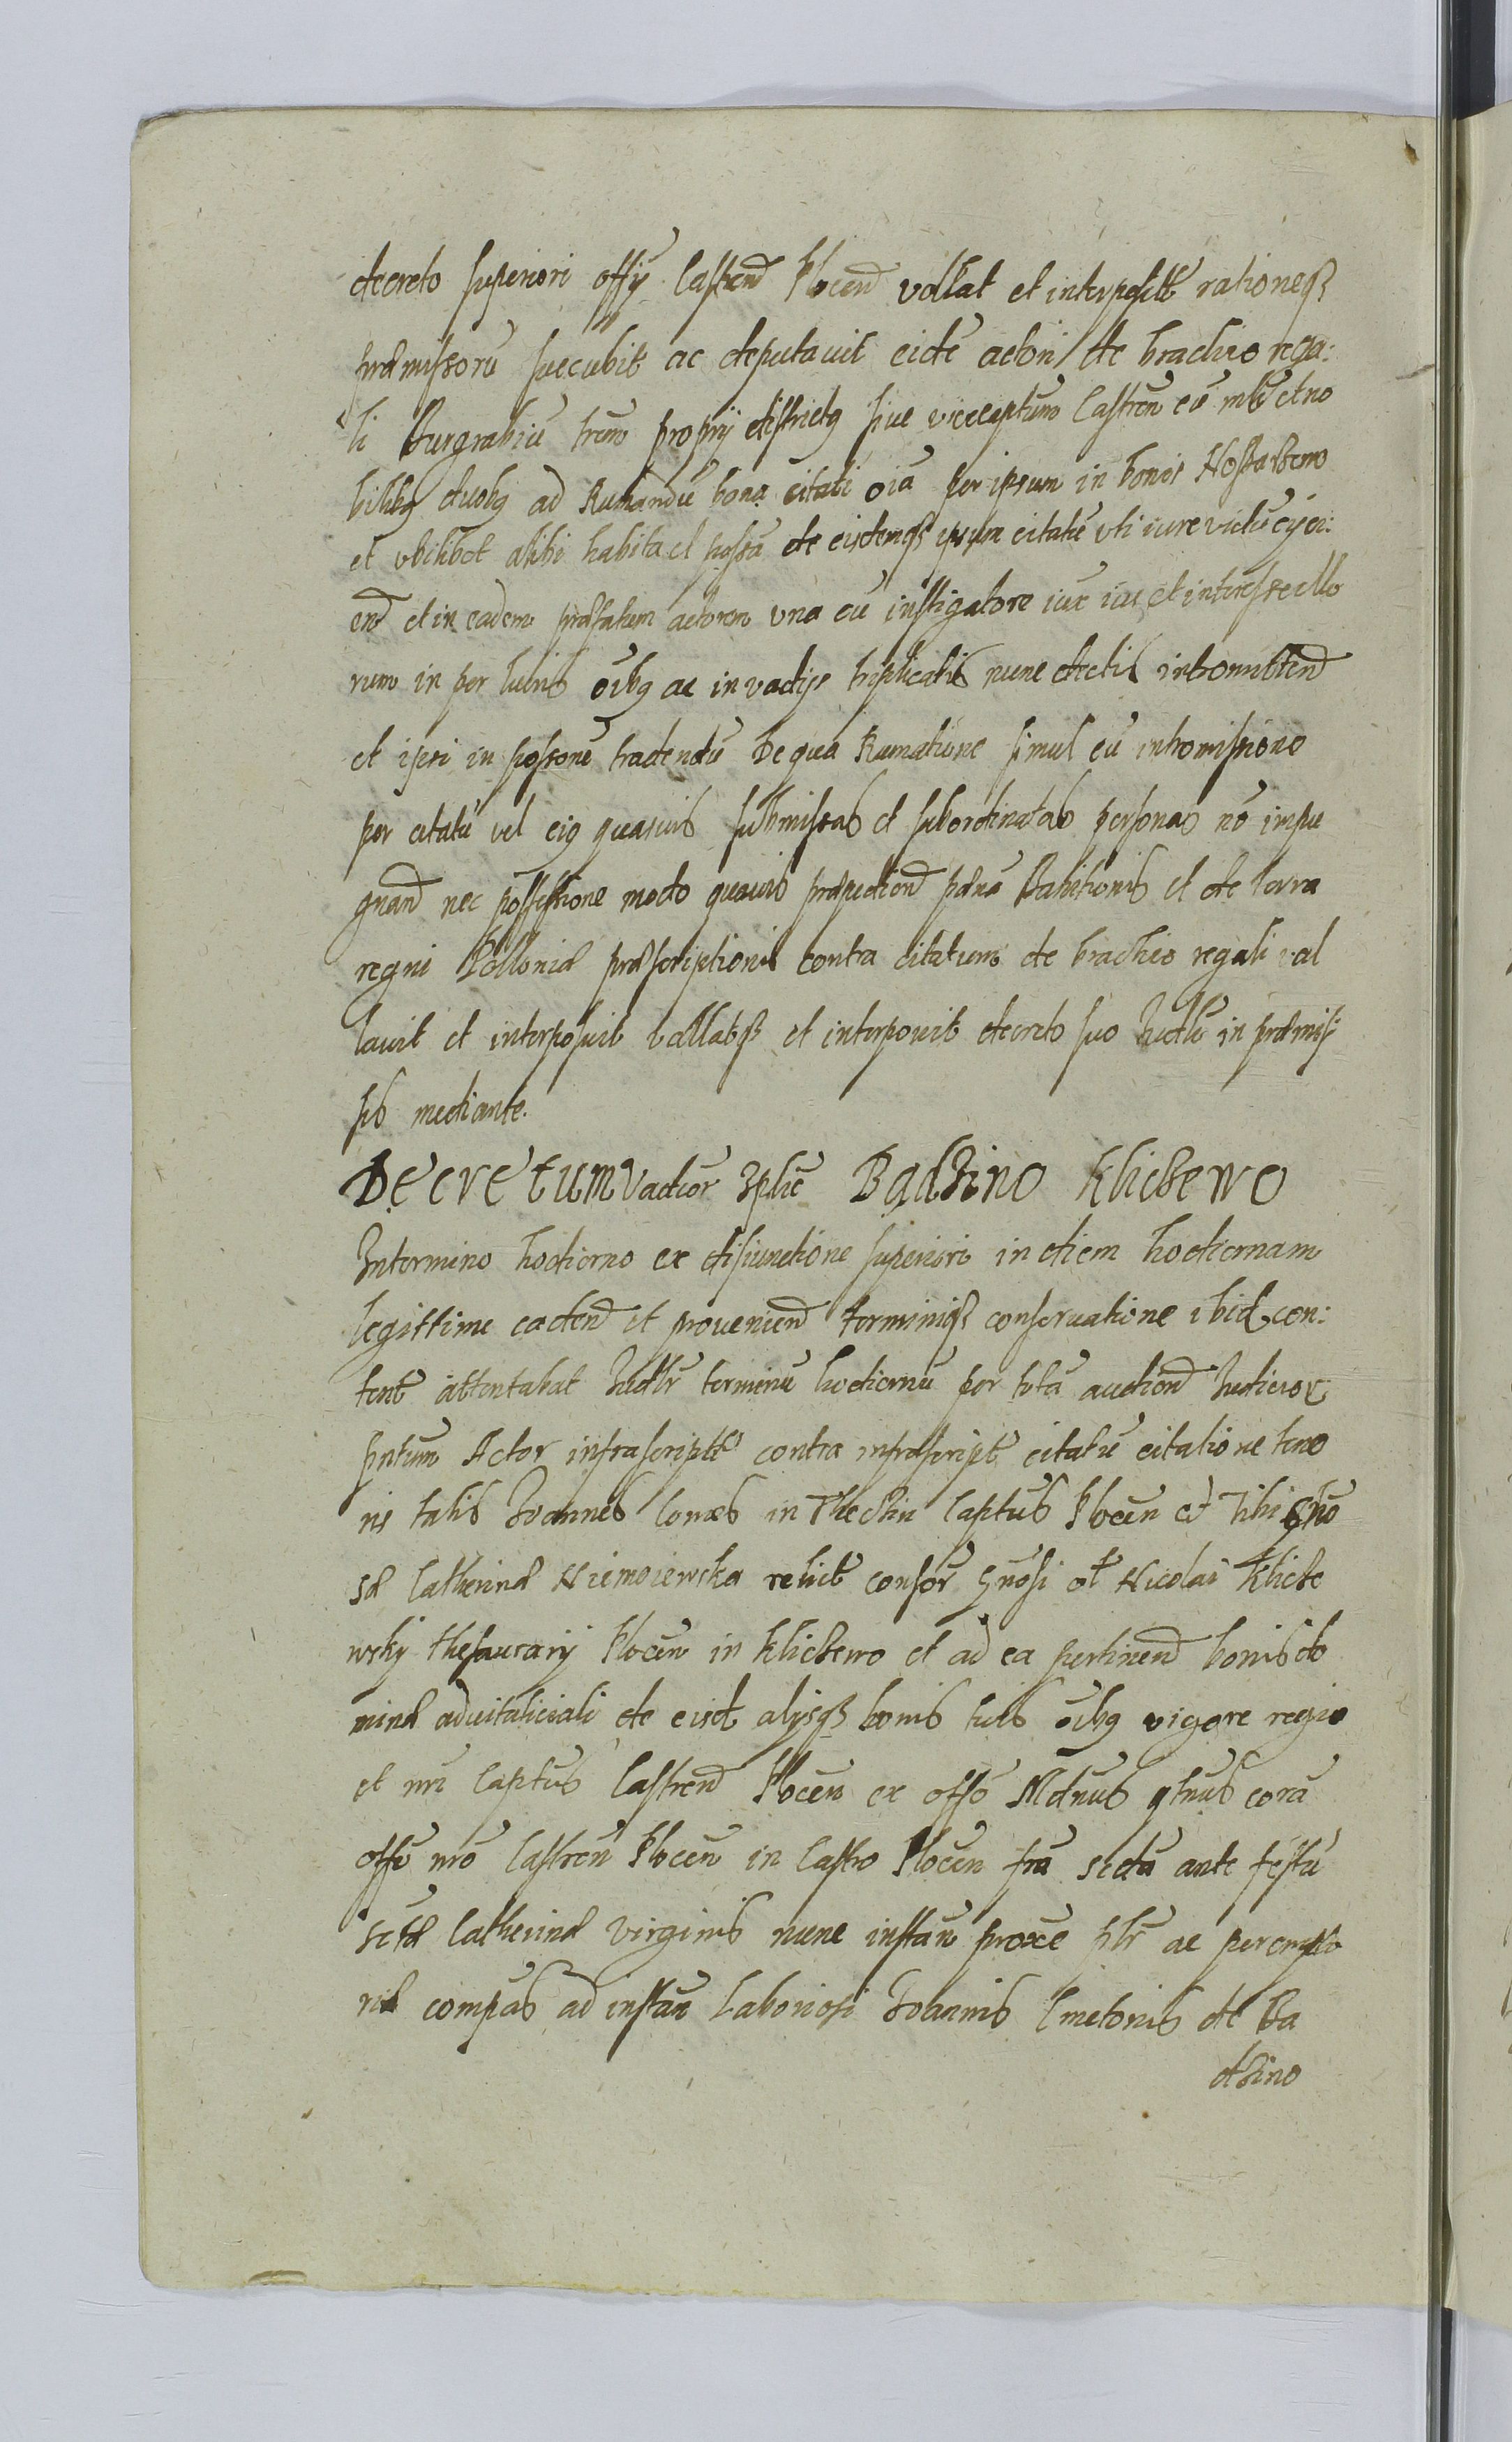 decreto superiori offÿ Castren Plocen vallat et interposit rationeqꝫ
præmissorū succubit ac deputavit eidē actori de brachio rega:
li Burgrabiū trēm proprÿ districtꝰ sive vicecaptūm Castren cū mlē et no
bilibꝰ duobꝰ ad Rumandū bona citati oīa per ipsum in bonis
et ubilibet alibi habita et possā de eisdemqꝫ ipsum citatū uti iure victū eÿci:
end et in eadem præfatum actorem una cū instigatore iux ius et interesse illo
rum in per lucris oībꝰ ac in vadÿs triplicatis nunc dictis intromittend
et ipsi in possone tradendū De qua Rumatione simul cū intromissione
per citatū vel eiꝰ quasvis submissas et subordinatas personas nō impu
gnand nec possessione modo quavis præpediend pæna Banitionis et de terra
regni Polloniæ præscriptionis contra citatum de brachio regali val
lavit et interposuit vallatqꝫ et interponit decreto suo Iudlī in præmis
sis mediante.
Decretum Vadior 3plic Badzino Kliczewo
In termino hodierno ex disiunctione superiori in diem hodiernam
legittime cadend et proveniend terminiqꝫ conservatione ibid con:
tent attentabat Iudlr terminū hodiernū per totā audiend Iudicior
pntum Actor infrascriptꝰ contra infrascript citatū citatione teno
ris talis Ioannes Comes in Theczin Captus Plocen et Tibi Gno
sæ Catherinæ Niemoiewska relict consor Gnosi ol Nicolai Klicze
wsky thesaurarÿ Plocen in Kliczewo et ad ea pertinend bonis do
minæ advitaliciali de eisd alÿsqꝫ bonis tuis oībꝰ vigore regio
et nri Captus Castrend Plocen ex offo Mdmus qtnus corā
offo nro Castren Plocen in Castro Plocen fra secda ante festū
sctæ Catherinæ Virginis nunc instan proxe plr ac perempto
rie compas ad instan Laboriosi Ioannis Cmetonis de Ba
dzino